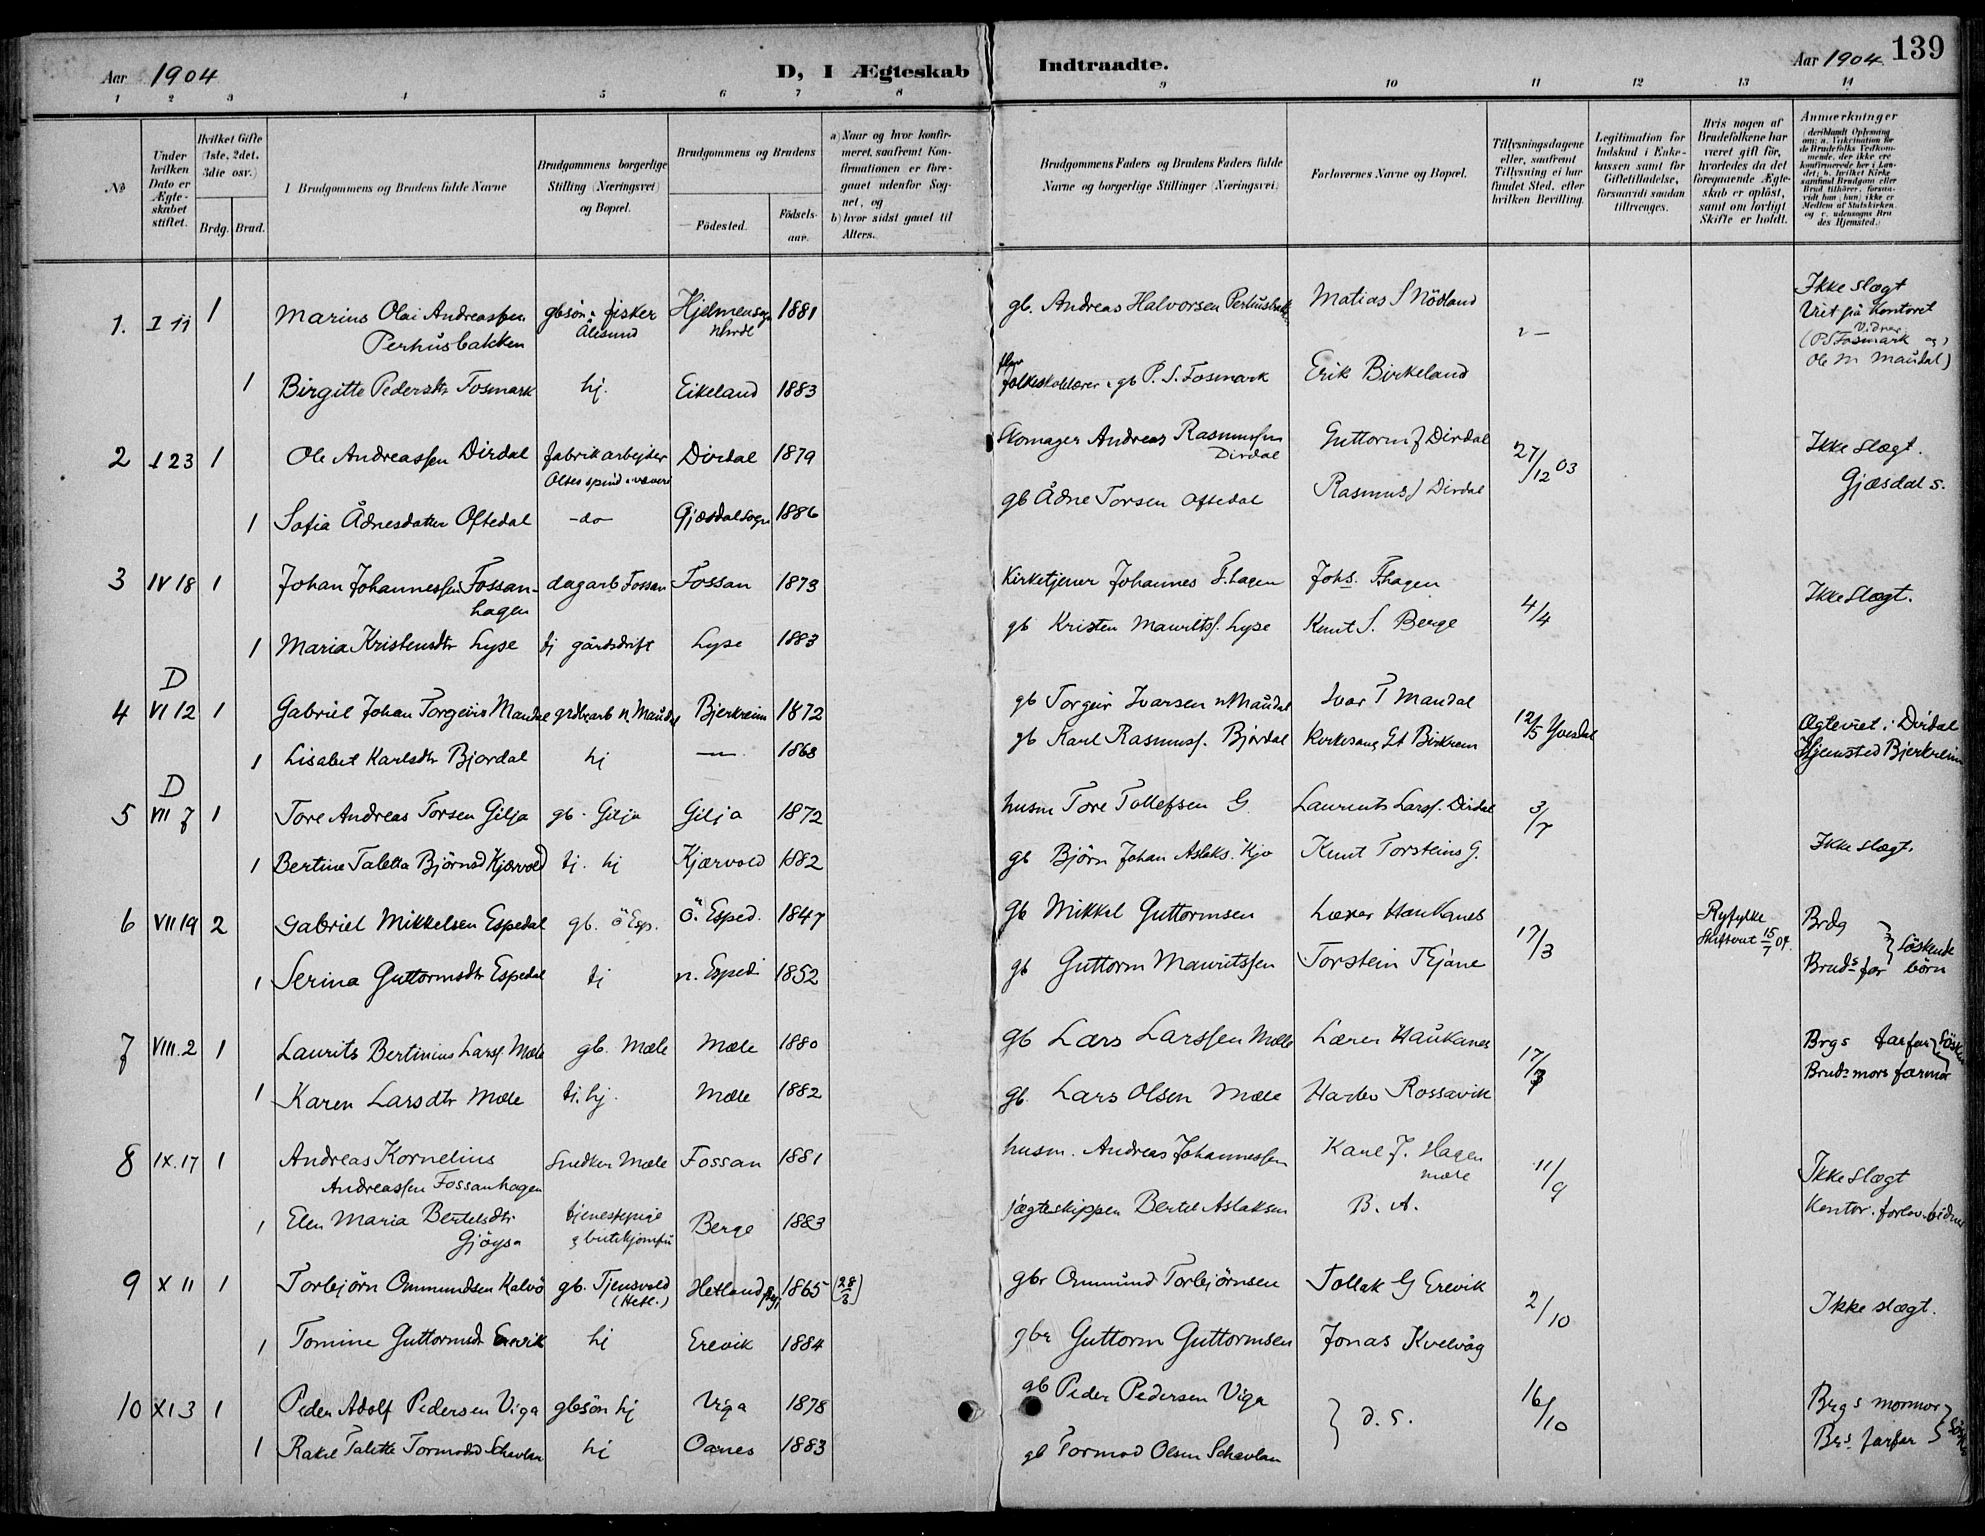 Aar 1904
D, I Ægteskab Indtraadte.
Aar 1904. 139
1 2 3 4 5 6 7 8 9 10 11 12 13 14
No
Under hvilken Dato er Ægteskabet stiftet.
Hvilket Gifte (1ste, 2det, 3die osv.)
Brdg. Brud.
Brudgommens og Brudens fulde Navne
Brudgommens borgerlige Stilling (Næringsvei) og Bopæl.
Brudgommens og Brudens
Fødested. Fødselsaar.
a) Naar og hvor konfirmeret, saafremt Konfirmationen er foregaaet udenfor Sognet, og
b) hvor sidst gaaet til Alters.
Brudgommens Faders og Brudens Faders fulde Navne og borgerlige Stillinger (Næringsvei)
Forlovernes Navne og Bopæl.
Tillysningsdagene eller, saafremt Tillysning ei har fundet Sted, efter hvilken Bevilling.
Legitimation for Indskud i Enkekassen samt for Giftetilladelse, forsaavidt saadan tiltrænges.
Hvis nogen af Brudefolkene har været gift før, hvorledes da det foregaaende Ægteskab er opløst, samt om lovligt Skifte er holdt.
Anmærkninger (deriblandt Oplysning om: a. Vakcination for de Brudefolks Vedkommende, der ikke ere konfirmerede her i Landet; b. hvilket Kirkesamfund Brudgom eller Brud tilhører, forsaavidt han (hun) ikke er Medlem af Statskirken, og c. udensogns Brudes Hjemsted.)
1. I 11 1 Marius Olai Andreassen Perhusbakken gbsön & fisker Ålesund Hjelmensogn 1881 gb. Andreas Halvorsen Perhusbakk Matias S Nödland Ikke slægt
Viet på Kontoret
Vidner
(P S Fosmark og
Ole M Maudal)
1 Birgitte Pedersdtr Fosmark hj. Eikeland 1883 folkeskolelærer & gb P. S. Fosmark Erik Birkeland
2 I 23 1 Ole Andreassen Dirdal fabrikarbejder Dirdal 1879 Skomager Andreas Rasmussen Dirdal Guttorm J Dirdal 27/12 03 Ikke slægt.
Gjæsdal s.
1 Sofia Ådnesdatter Oftedal -do- Gjæsdalsogn 1886 gb Ådne Torsen Oftedal Rasmus J Dirdal
3 IV 18 1 Johan Johannessen Fossanhagen dagarb Fossan Fossan 1873 Kirketjener Johannes F.hagen Johs. F.hagen 4/4 Ikke slægt.
1 Maria Kristensdtr Lyse tj gårdsdrift Lyse 1883 gb Kristen Mauritss. Lyse Knut S. Berge
D
4 VI 12 1 Gabriel Johan Torgeirs Maudal grdbrarb n Maudal Bjerkreim 1872 gb Torgeir Ivarsen n Maudal Ivar T Maudal 12/5 Ægteviet i Dirdal
Hjemsted Bjerkreim
1 Lisabet Karlsdtr Bjordal hj — 1868 gb Karl Rasmuss. Bjordal Kirkesang
D
5 VII 7 1 Tore Andreas Torsen Gilja gb. Gilja Gilja 1872 husm Tore Tollefsen G. Laurents Larss. Dirdal 3/7 Ikke slægt.
1 Bertine Taletta Björnsd Kjærvold tj. hj Kjærvold 1882 gb Björn Johan Aslaks. Kjv Knut Torsteins G.
6 VII 19 2 Gabriel Mikkelsen Espedal gb. ö Esp. ö. Esped. 1847 Gb Mikkel Guttormsen Lærer Haukanes 17/3 Ryfylke Skifteret 15/7 04. Brdg
Bruds far } Söskendebörn
1 Serina Guttormsdtr Espedal tj n. Esped 1852 gb Guttorm Mauritssen Torstein Tejane
7 VIII. 2 1 Laurits Bertinius Larss. Mæle gb. Mæle Mæle 1880 gb Lars Larssen Mæle Lærer Haukanes 17/7 Brgs farfar
Bruds mors farmor
1 Karen Larsdtr Mæle tj. hj. Mæle 1882 gb. Lars Olsen Mæle Rossavik
8 IX. 17 1 Andreas Kornelius Andreassen Fossanhagen Snedker Mæle Fossan 1881 husm. Andreas Johannessen Karl J. Hagen Mæle 11/9 Ikke slægt
Kontor. forlov. vidner
1 Elen Maria Bertelsdtr Gjöysa tjenestepige Berge 1883 jægteskipper Bertel Aslaksen B. A.
9 X 11 1 Torbjörn Ommundsen Kalvö gb. Tjensvold (Hetl.) Hetland 1865 (28/3) gbr Ommund Torbjörnsen Tollak G Erevik 2/10 Ikke slægt.
1 Tomine Guttormsdtr Erevik hj Erevik 1884 gbr Guttorm Guttormsen Jonas Kvelvåg
10 XI 3 1 Peder Adolf Pedersen Viga gbsön hj Viga 1878 gb Peder Pedersen Viga } d. s. 16/10 Brgs mormor
Brs farfar
1 Rakel Talette Tormodsd Schavlan hj Oanes 1883 gb Tormod Olsen Schavlan